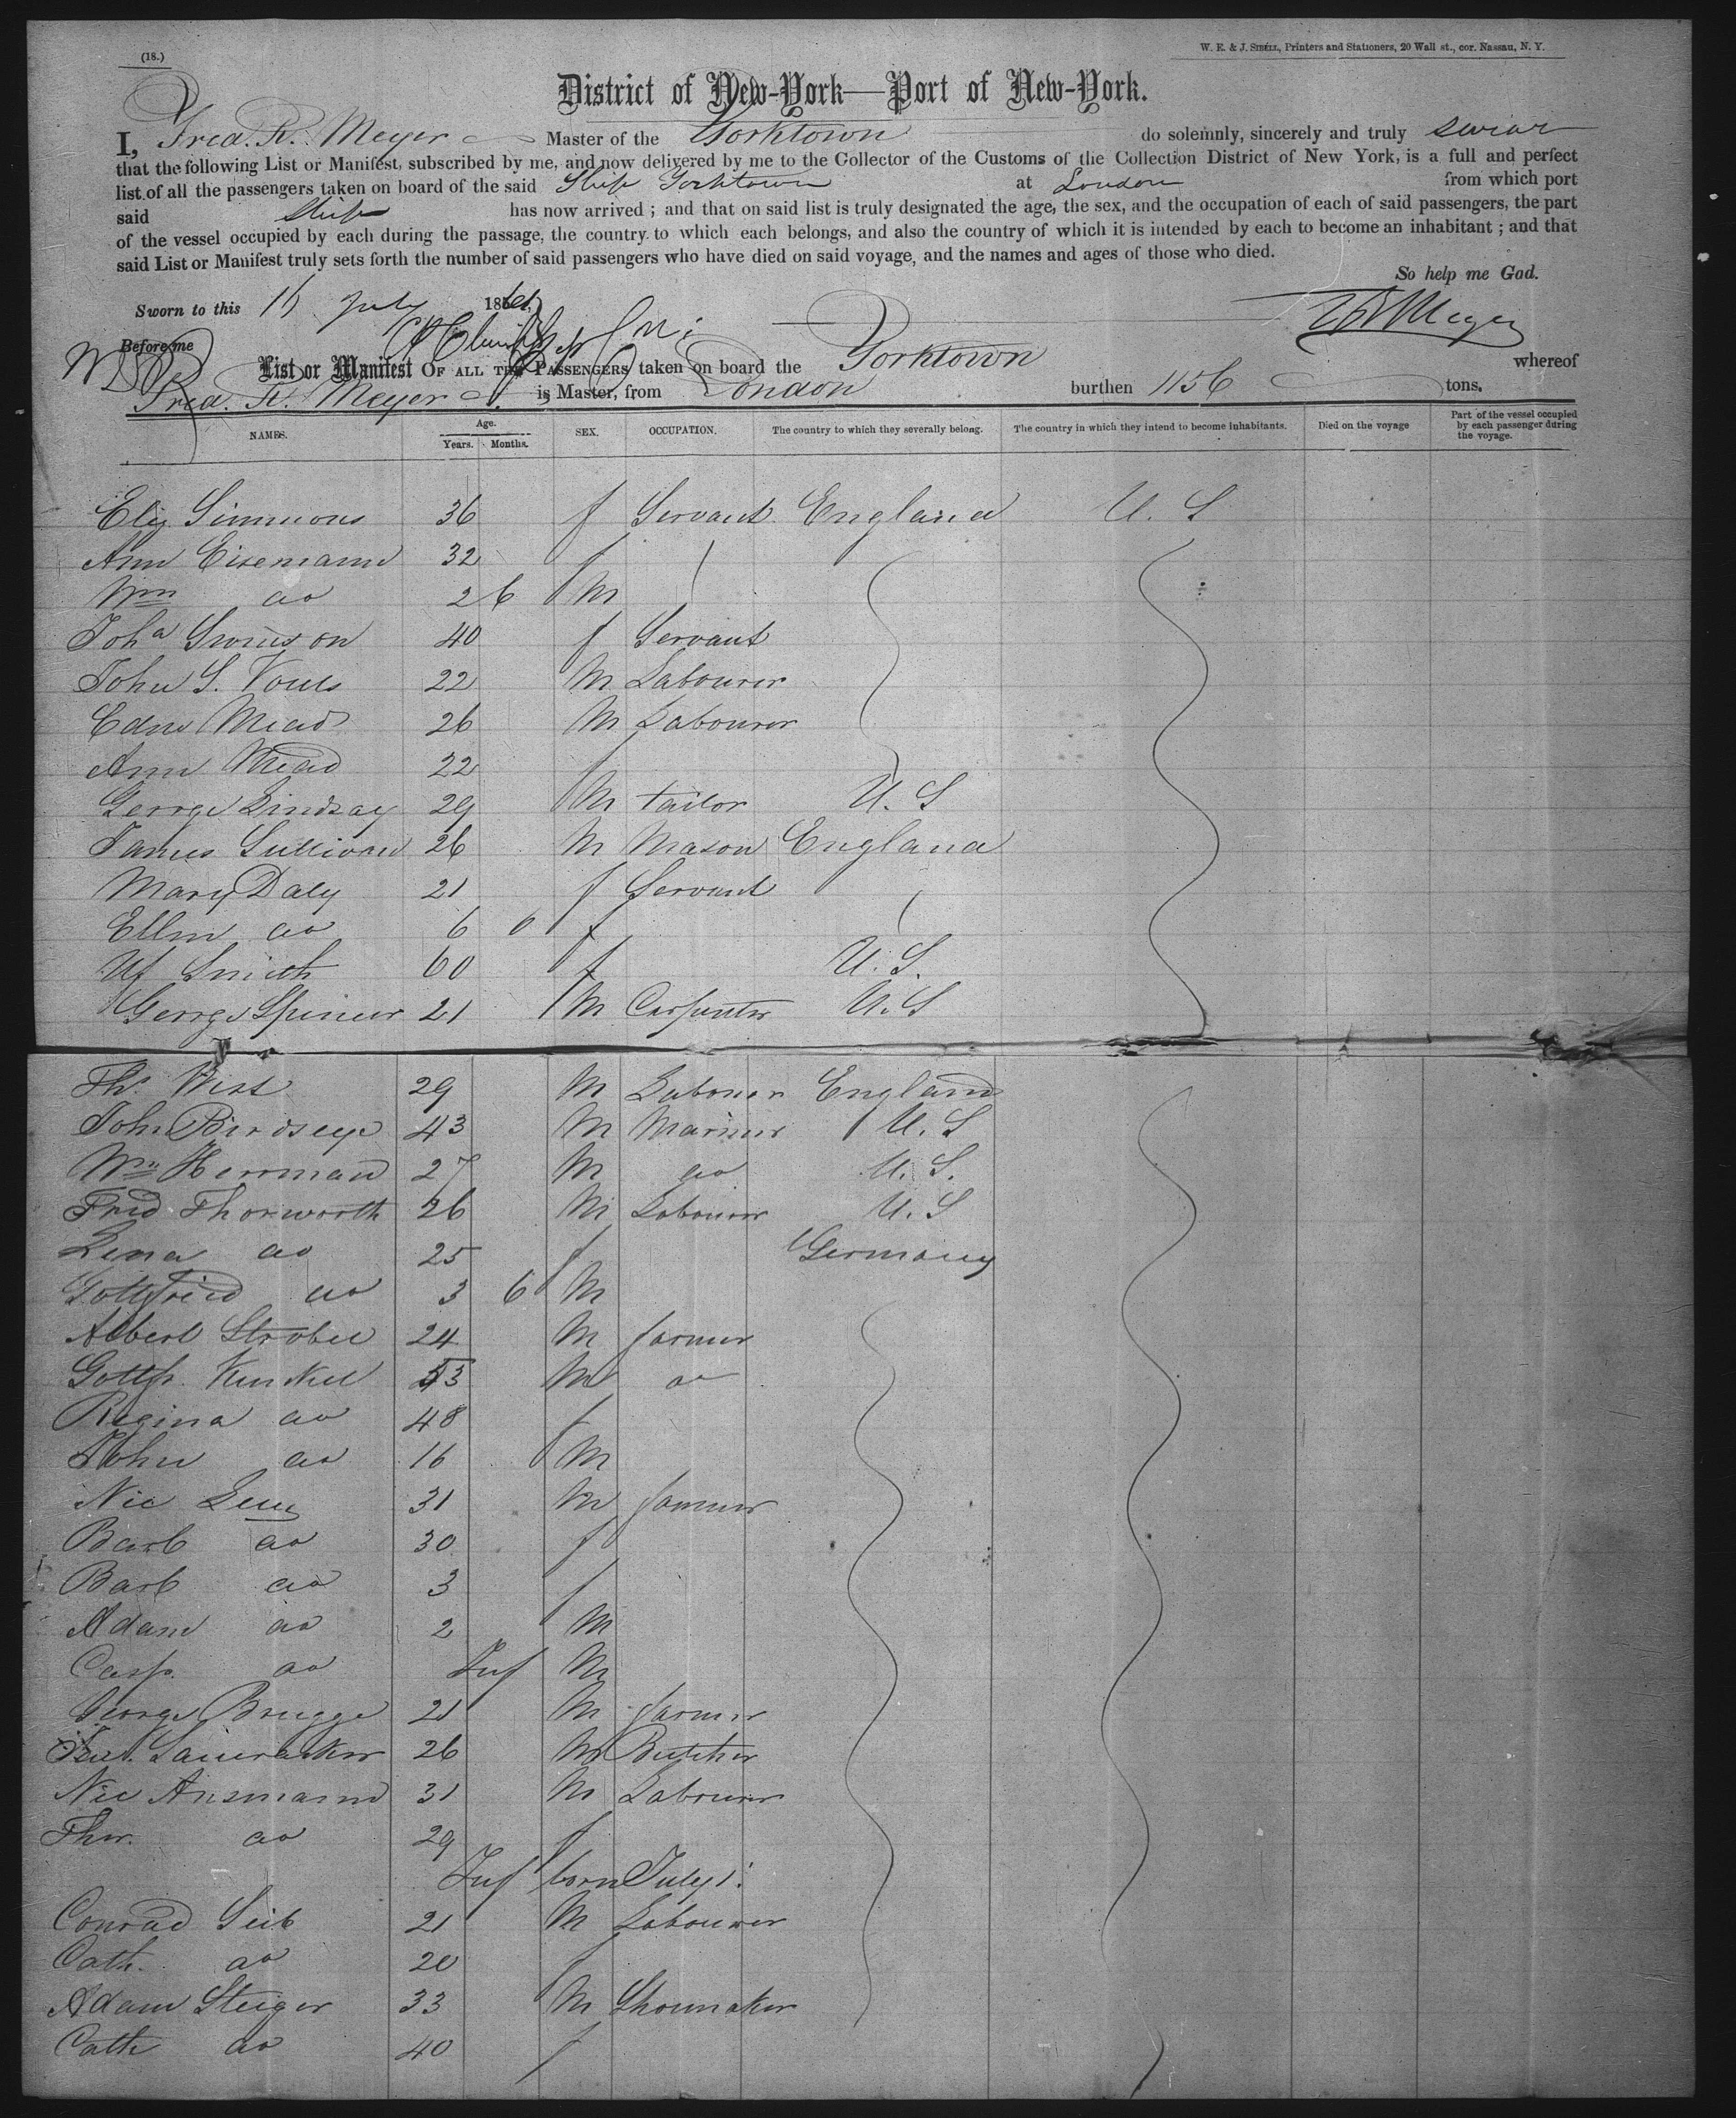 (18.)
W. E. & J. SIBELL, Printers and Stationers, 20 Wall st., cor. Nassau, N. Y.
District of New-York—Port of New-York.
I, Fred. R. Meyer Master of the Yorktown do solemnly, sincerely and truly swear
that the following List or Manifest, subscribed by me, and now delivered by me to the Collector of the Customs of the Collection District of New York, is a full and perfect
list of all the passengers taken on board of the said Ship Yorktown at London from which port
said Ship has now arrived ; and that on said list is truly designated the age, the sex, and the occupation of each of said passengers, the part
of the vessel occupied by each during the passage, the country to which each belongs, and also the country of which it is intended by each to become an inhabitant ; and that
said List or Manifest truly sets forth the number of said passengers who have died on said voyage, and the names and ages of those who died.
So help me God.
Sworn to this 16 July 186
Meyer
Before me
List or Manifest OF ALL THE PASSENGERS taken on board the Yorktown whereof
Fred. R. Meyer is Master, from London burthen 1156 tons.
NAMES. Age. Years. Months. SEX. OCCUPATION. The country to which they severally belong. The country in which they intend to become inhabitants. Died on the voyage Part of the vessel occupied by each passenger during the voyage.
Eliz Simmons 36 f Servant England U. S
Ann Eisemann 32 f
Wm do 2 6 M
Joha 40 f Servant
John S. Vouls 22 M Labourer
Edw Mead 26 M Labourer
Ann Mead 22 f
George Lindsay 29 M tailor U. S
James Sullivan 26 M Mason England
Mary Daly 21 f Servant
Ellen do 6 0 f
Smith 60 f U. S.
George Spencer 21 M Carpenter U. S
Ths. West 29 M Labourer England
John Birdseye 43 M Mariner U. S
Wm Herrman 27 M do U. S.
Fred Thorworth 26 M Labourer U. S
Lena do 25 f Germany
Gottfried do 3 6 M
Albert Strobel 24 M farmer
Gottfr. Kunkel 53 M do
Regina do 48 f
John do 16 M
Nic Leng 31 M farmer
Barb do 30 f
Barb do 3 f
Adam do 2 M
Casp. do Inf M
George Brugge 21 M farmer
26 M Butcher
Nic Ansmann 31 M Labourer
Ther. do 29 f
Inf born July 1.
Conrad Seib 21 M Labourer
Cath. do 20 f
Adam Steiger 33 M Shoemaker
Cath do 40 f